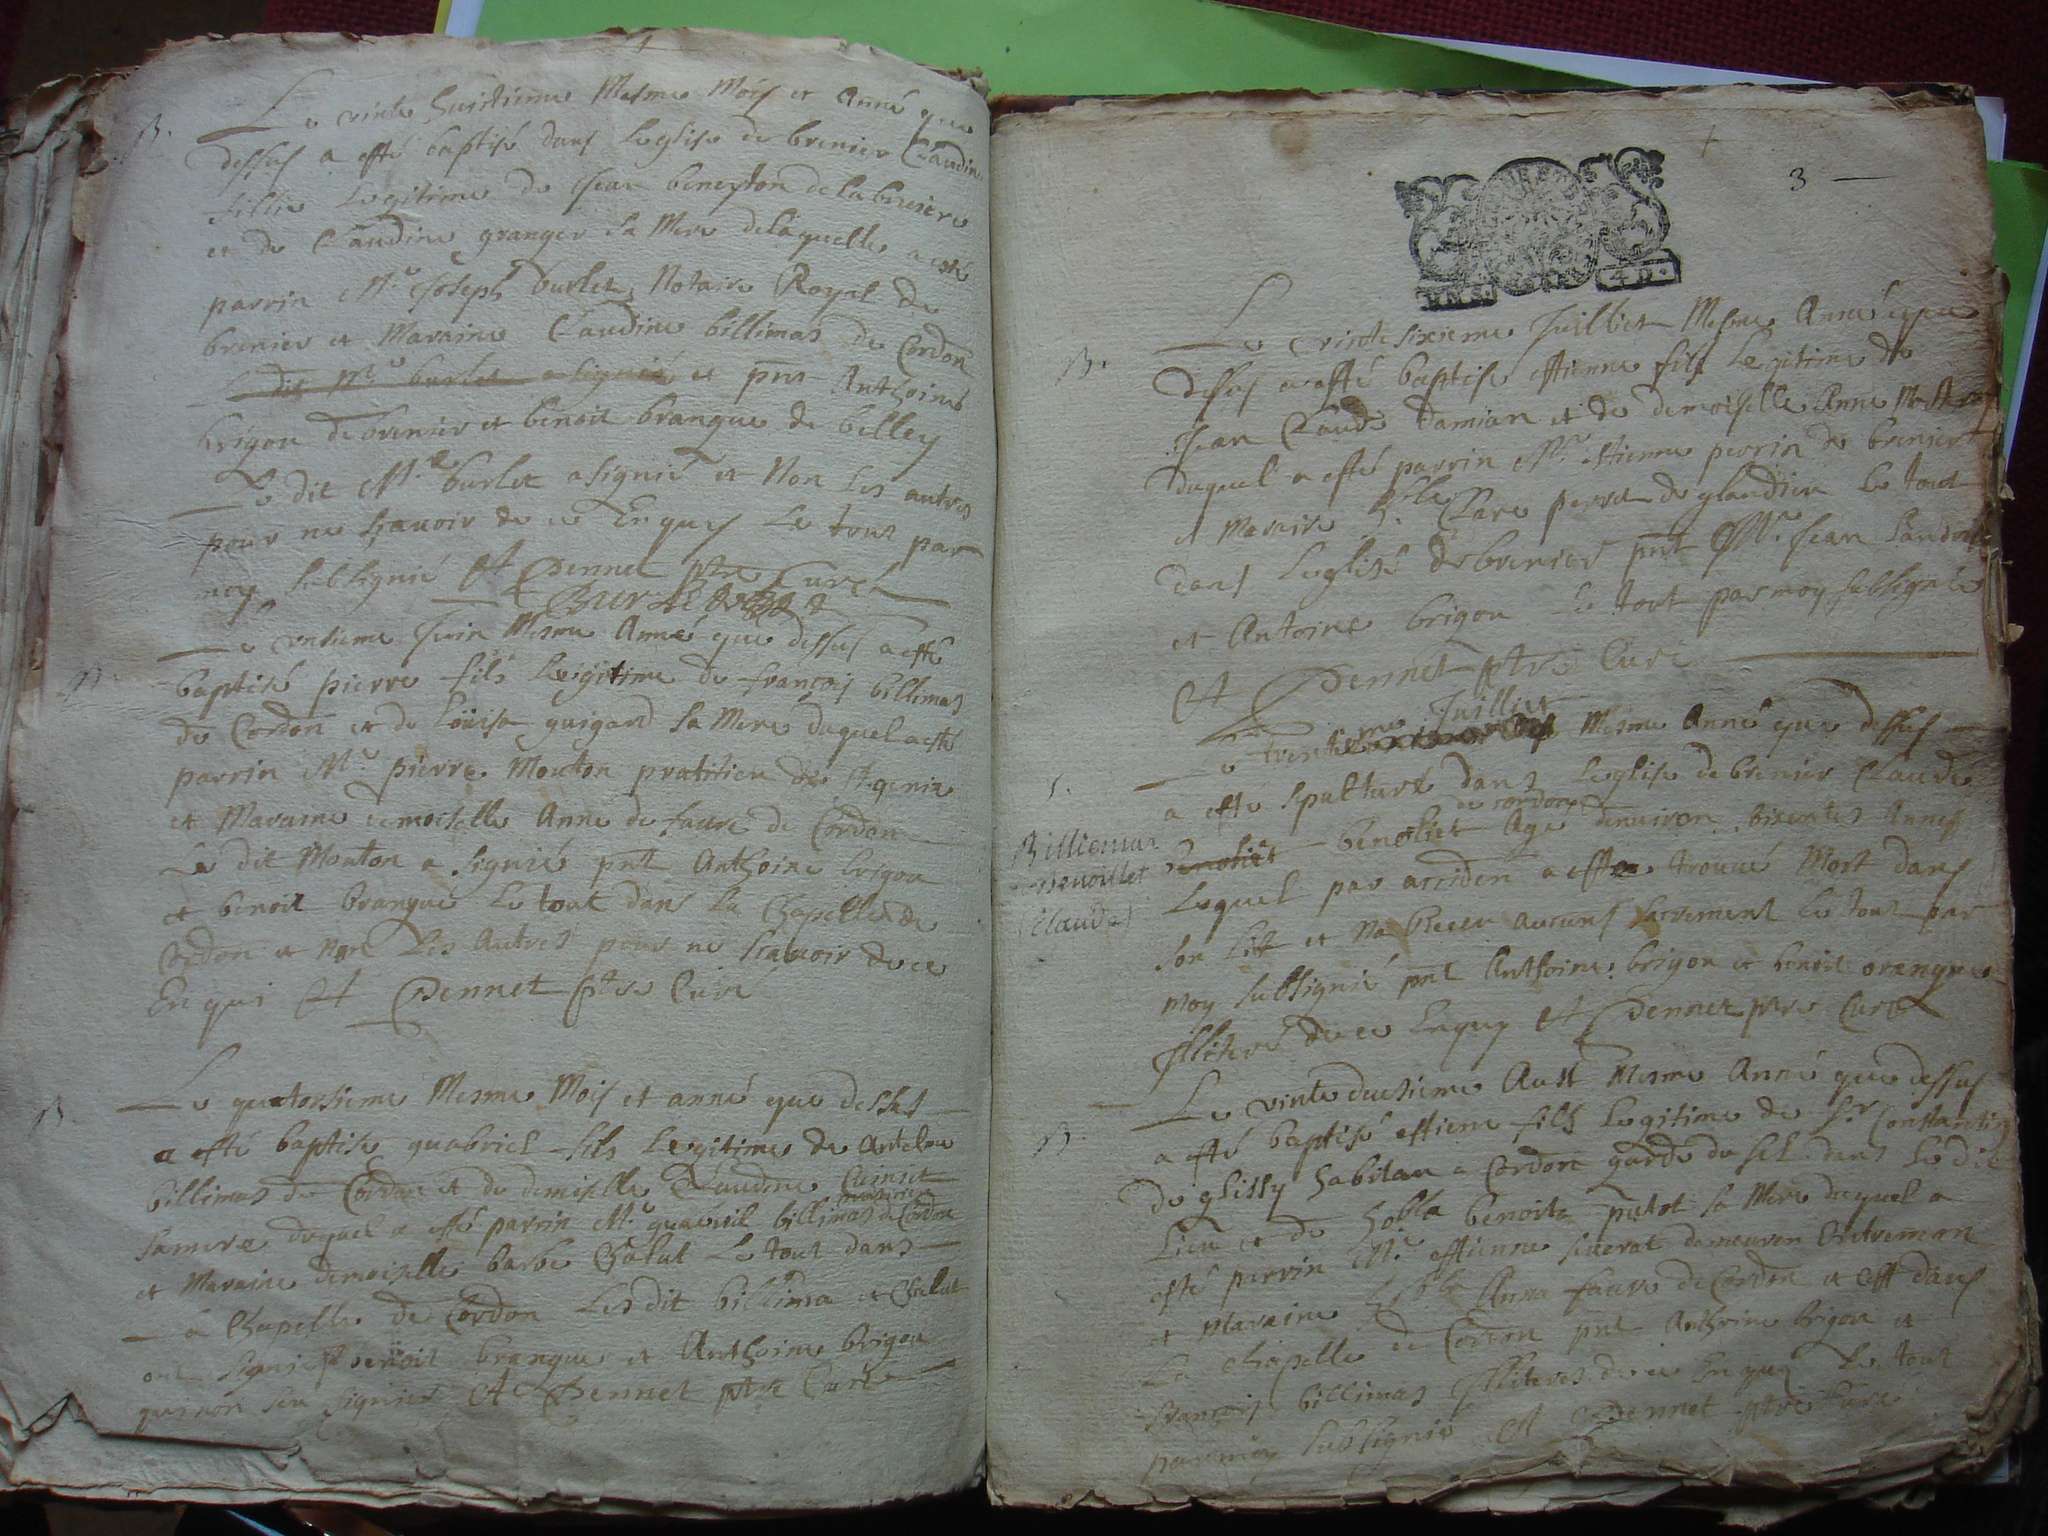 B.
Le vinte huictieme Mesme Mois et Anné que
dessus a esté baptisé dans Leglise de brenier Claudine
fillie Legitime de Jean beneyton de la bruiere
et de Claudine granger sa Mere de laquelle a esté
parrin Mr Joseph burlet Notaire Royal de
brenier et Maraine Claudine billimas de Cordon
Le dit Mr burlet a signié et pnt Anthoine
brigou de brenier et benoit brangue de belley
Le dit Mr burlet a signié et Non Les autres
pour ne scavoir de ce Enquis Le tout par
moy subsignié Et Dennet ptre Curé
Burlet
B.
Le onsieme Juin Mesme Anné que dessus a esté
baptisé pierre fils Legitime de françois billimas
de Cordon et de Loüise guigard sa Mere duquel a esté
parrin Mr pierre Mouton pratitien de St genix
et Maraine demoiselle Anne de faure de Cordon
Le dit Mouton a signié pnt Anthoine brigou
et benoit brangue Le tout dans La Chapelle de
Cordon et non Les Autres pour ne scavoir de ce
Enqui Et Dennet ptre Curé
B
Le quatorsieme Mesme Mois et anné que dessus
a esté baptise guabriel fils Legitime de
billimas de Cordon et de demiselle Claudine
sa mere duquel a esté parrin Mr guabriel billimas de Cordon
et Maraine demoiselle barbe Chalut Le tout dans
La Chapelle de Cordon Les dit billima et Chalut
ont signi et benoit brangue et Anthoine brigou
qui non seu signier Et Dennet ptre Curé
3
B.
Le vinte sixieme Juilliet Mesme Anné que
dessus a esté baptisé estienne fils Legitime de
Jean Claude Damian et de demoiselle Anne
duquel a esté parrin Mr estienne perrin de brenier
et Maraine Clare perret de glandieu Le tout
dans Leglise de brenier pnt Mr Jean
et Antoine brigou Le tout par moy subsignié
Et Dennet ptre Curé
Juilliet
S.
Le trentieme Mesme Anné que dessus
a esté sepulturé dans Leglise de brenier Claude
de cordon
benoliet benoliet Agé denviron Annes
Billiemas
Benoillet
(Claude)
Lequel par acciden a esté trouvé Mort dans
son Lit et Na Receu aucuns sacrement Le tout par
moy subsignié pnt Anthoine brigou et benoit brangue
Illiteré de ce Enquis Et Dennet ptre Curé
B.
Le vinte duesieme Aust Mesme Anné que dessus
a esté baptisé estiene fils Legitime de Sr Constantin
de glissy habitan a Cordon garde du sel dans Le dit
Lieu et de benoite putot sa Mere duquel a
esté parrin Mr estienne demeuran
et Maraine Anna faure de Cordon et dans
La Chapelle de Cordon pnt Anthoine brigou et
françois billimas Illiteres de ce Enquis Le tout
par moy subsignié Et Dennet ptre Curé